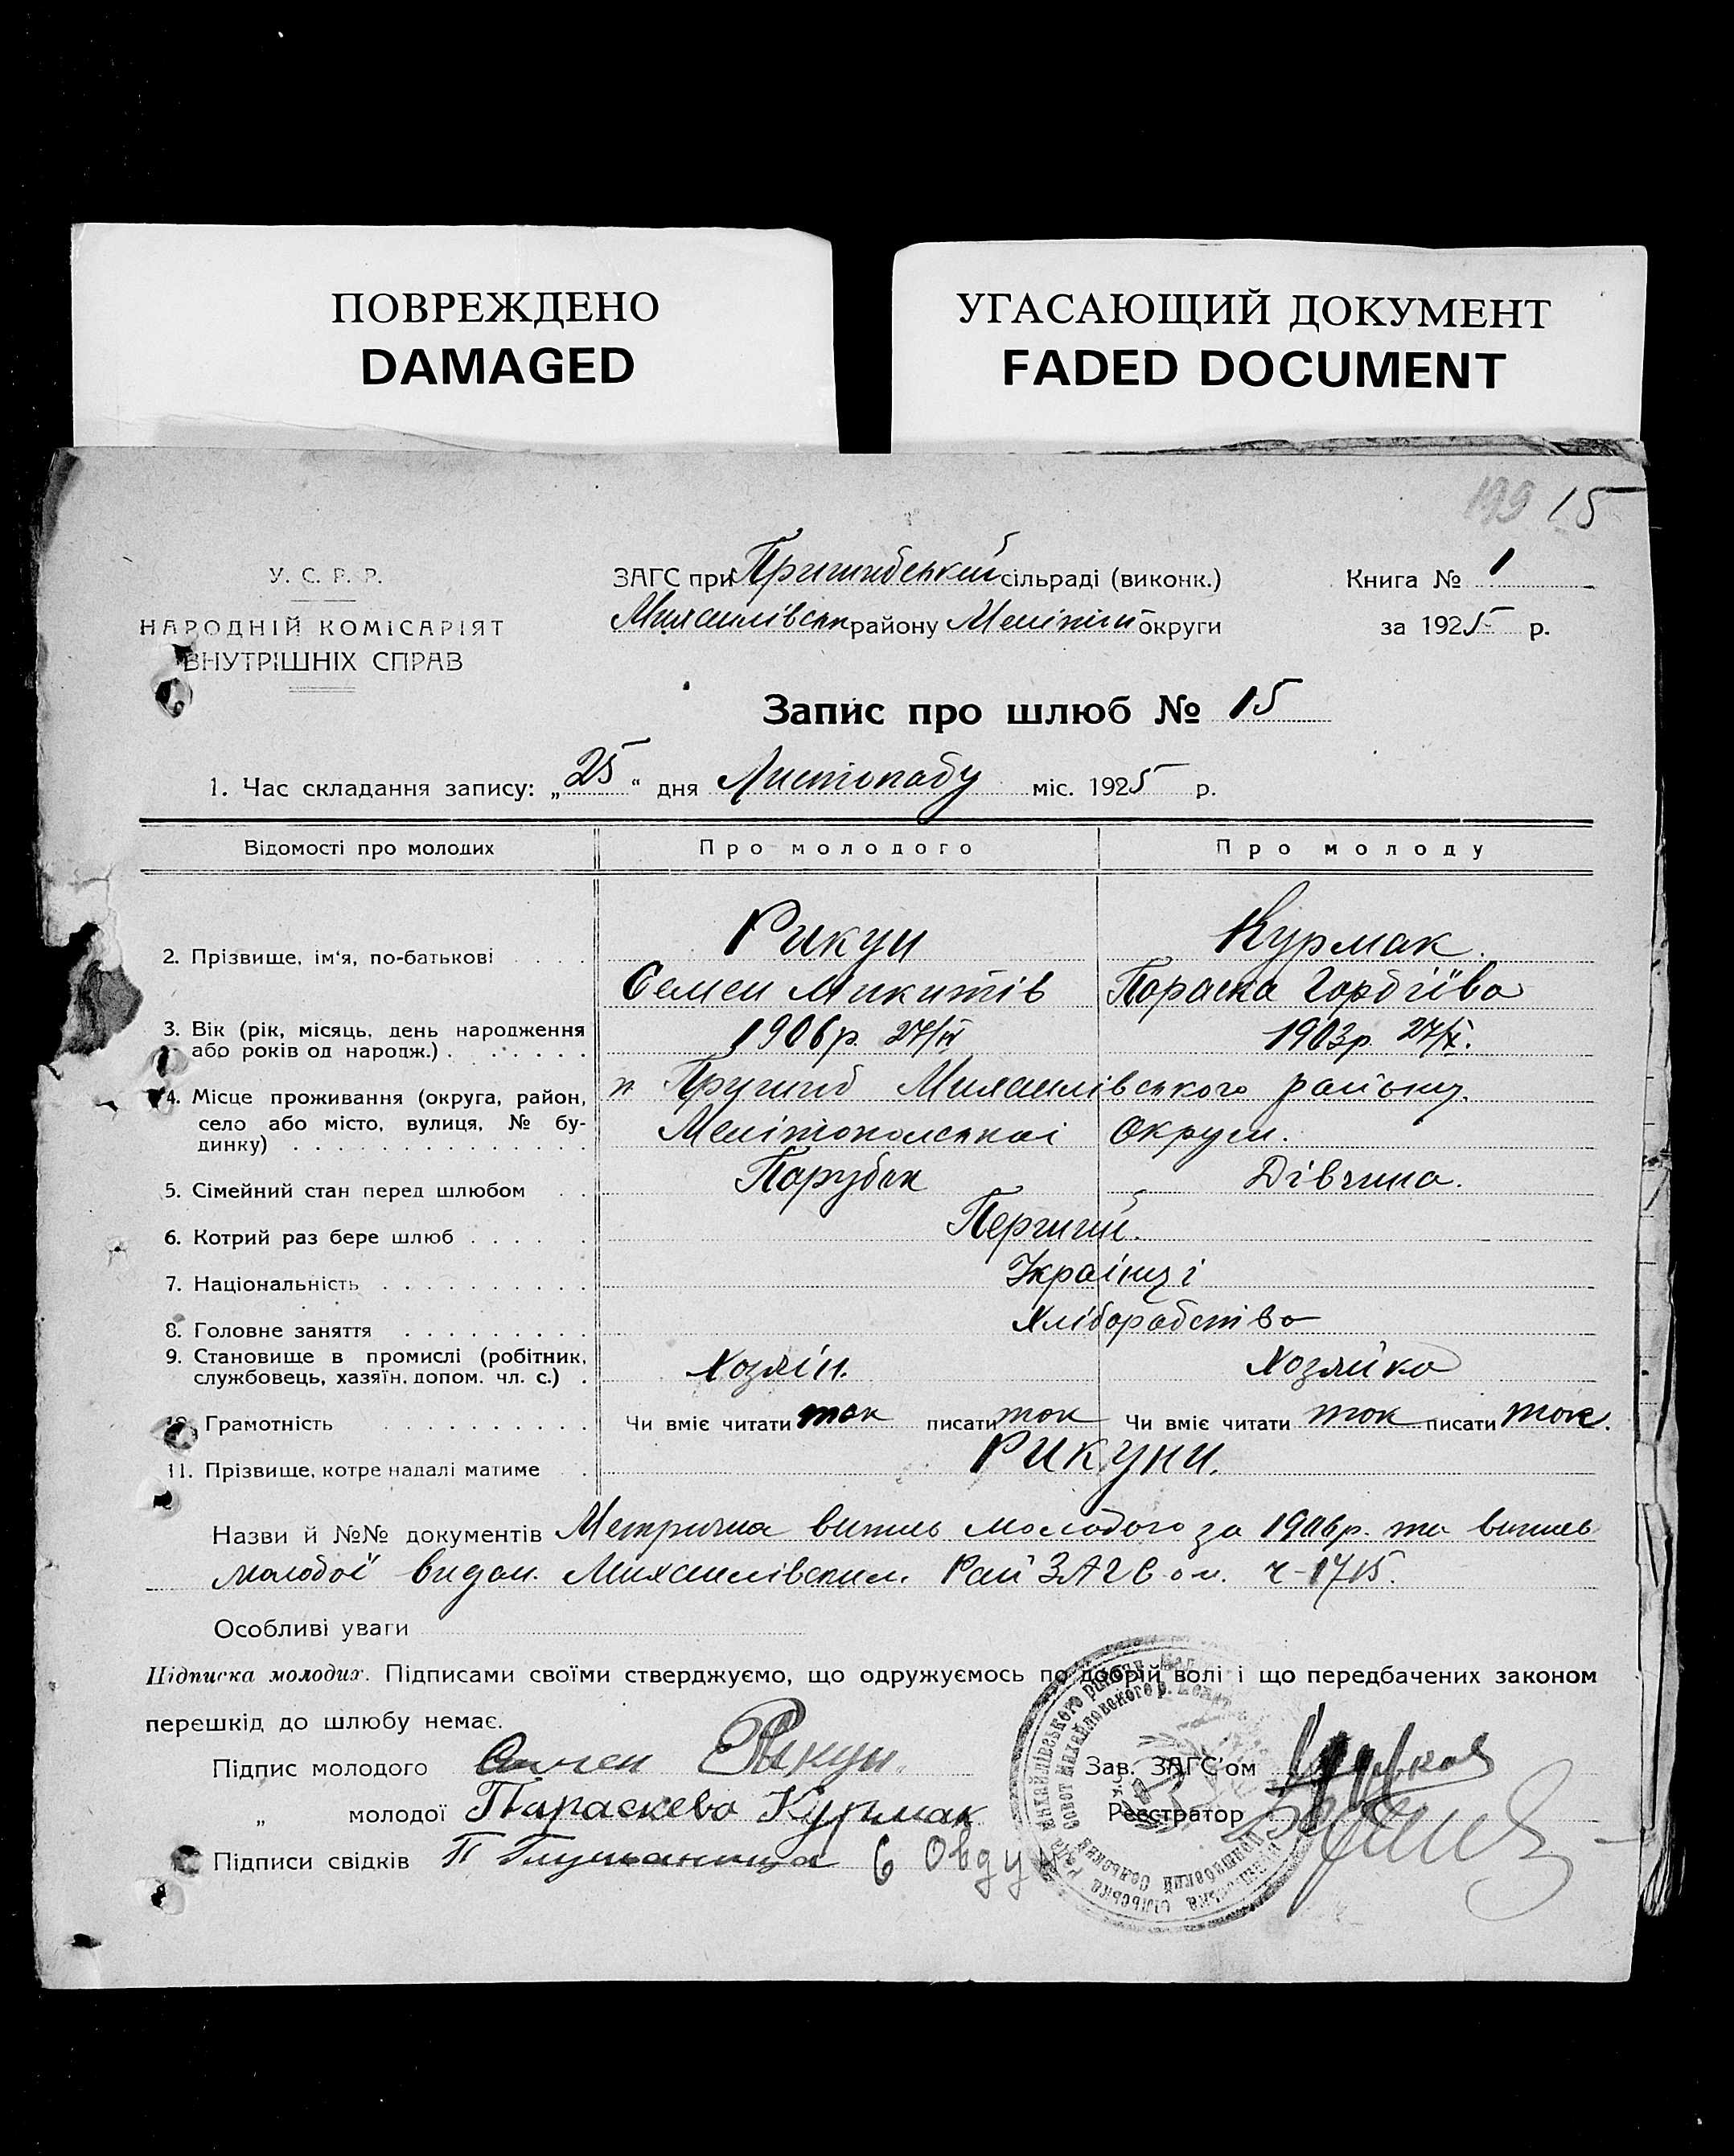 ПОВРЕЖДЕНО
DAMAGED
УГАСАЮЩИЙ ДОКУМЕНТ
FADED DOCUMENT
199 15
У. С. Р. Р.
НАРОДНІЙ КОМІСАРІЯТ
ВНУТРІШНІХ СПРАВ
ЗАГС при Пришибській сільраді (виконк.)
Михайлівськ району Меліпіль округи
Книга № 1
за 1925 р.
Запис про шлюб № 15
1. Час складання запису: „25“ дня Листопаду міс. 1925 р.
Відомості про молодих Про молодого Про молоду
2. Прізвище, ім'я, по-батькові Рикун Курмак.
Семен Микитів Параска Гордіїва
3. Вік (рік, місяць, день народження 1906р. 1903р. 27/X.
або років од народж.)
4. Місце проживання (округа, район, Пришиб Михайлівського району.
село або місто, вулиця, № бу- Мелітопольскаі Округи.
динку)
5. Сімейний стан перед шлюбом Парубок Дівчина.
6. Котрий раз бере шлюб Перший.
7. Національність Українці
8. Головне заняття Хліборобство
9. Становище в промислі (робітник, Хозяін. Хозяйка
службовець, хазяїн. допом. чл. с.)
10. Грамотність Чи вміє читати так писати так Чи вміє читати так писати так.
11. Прізвище, котре надалі матиме Рикуни.
Назви й №№ документів Метрична випись молодого за 1906р. та випись
молодої видан. Михайлівським Рай ЗАГС-ом. ч-1715.
Особливі уваги
Підписка молодих. Підписами своїми стверджуємо, що одружуємось по добрій волі і що передбачених законом
перешкід до шлюбу немає.
Підпис молодого Семен Рикун. Зав. ЗАГС'ом
„ молодої Параскева Курмак Реєстратор
Підписи свідків П